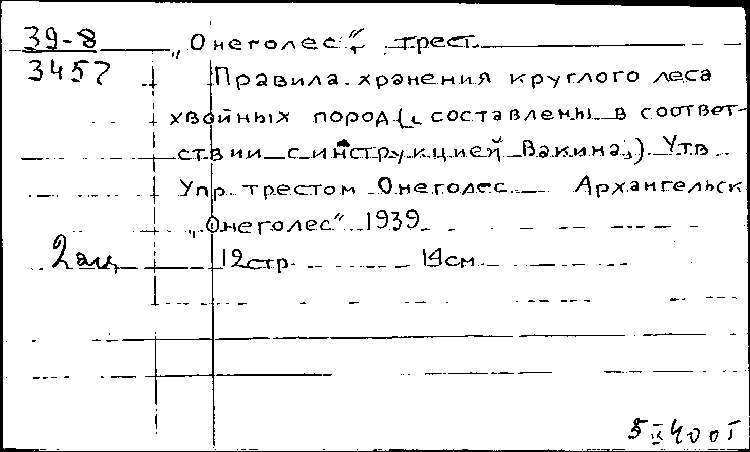 39-8
3457
„Онеголес“, трест.
Правила хранения круглого леса
хвойных пород (составлены в соответ-
ствии с инструкцией Вакина). Утв
Упр. трестом Онеголес. Архангельск
„Онеголес“ 1939
12 стр. 14 см.